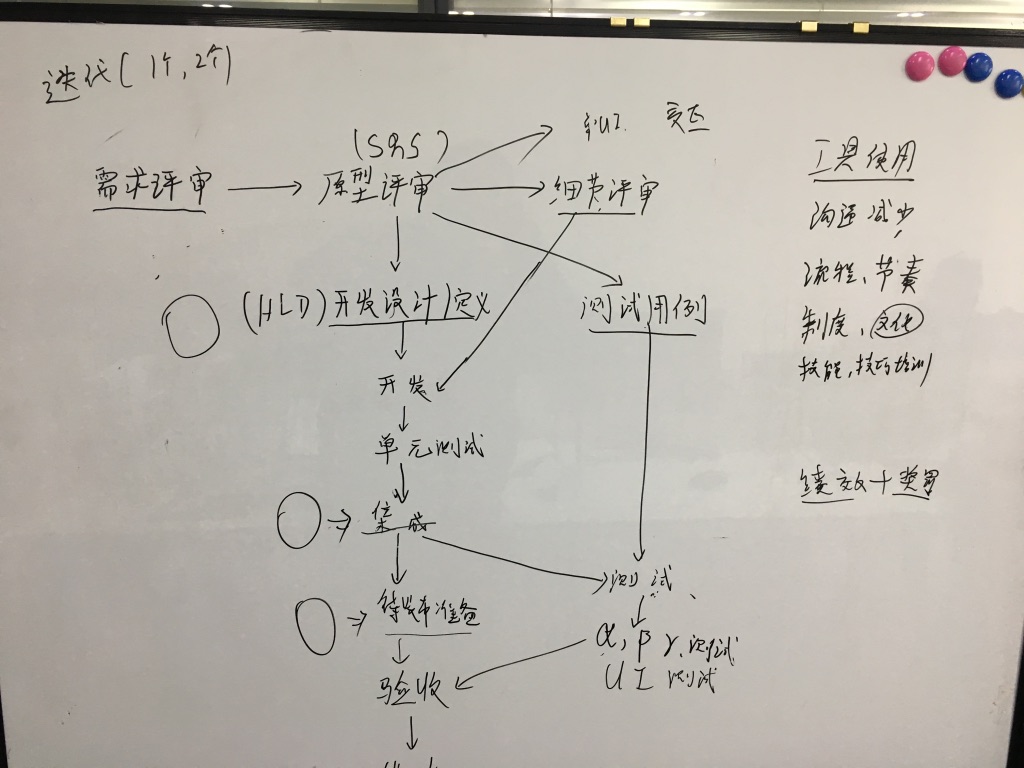 迭代(1个,2个)
(SRS)
需求评审
原型评审
细节评审
(HLD)开发设计)定义
测试用例
开发
单元测试
集成
测试
待发布准备
α,β γ.测试
UI 测试
验收
工具使用
沟通减少
流程、节奏
制度、文化
技能,技巧培训
绩效+奖罚